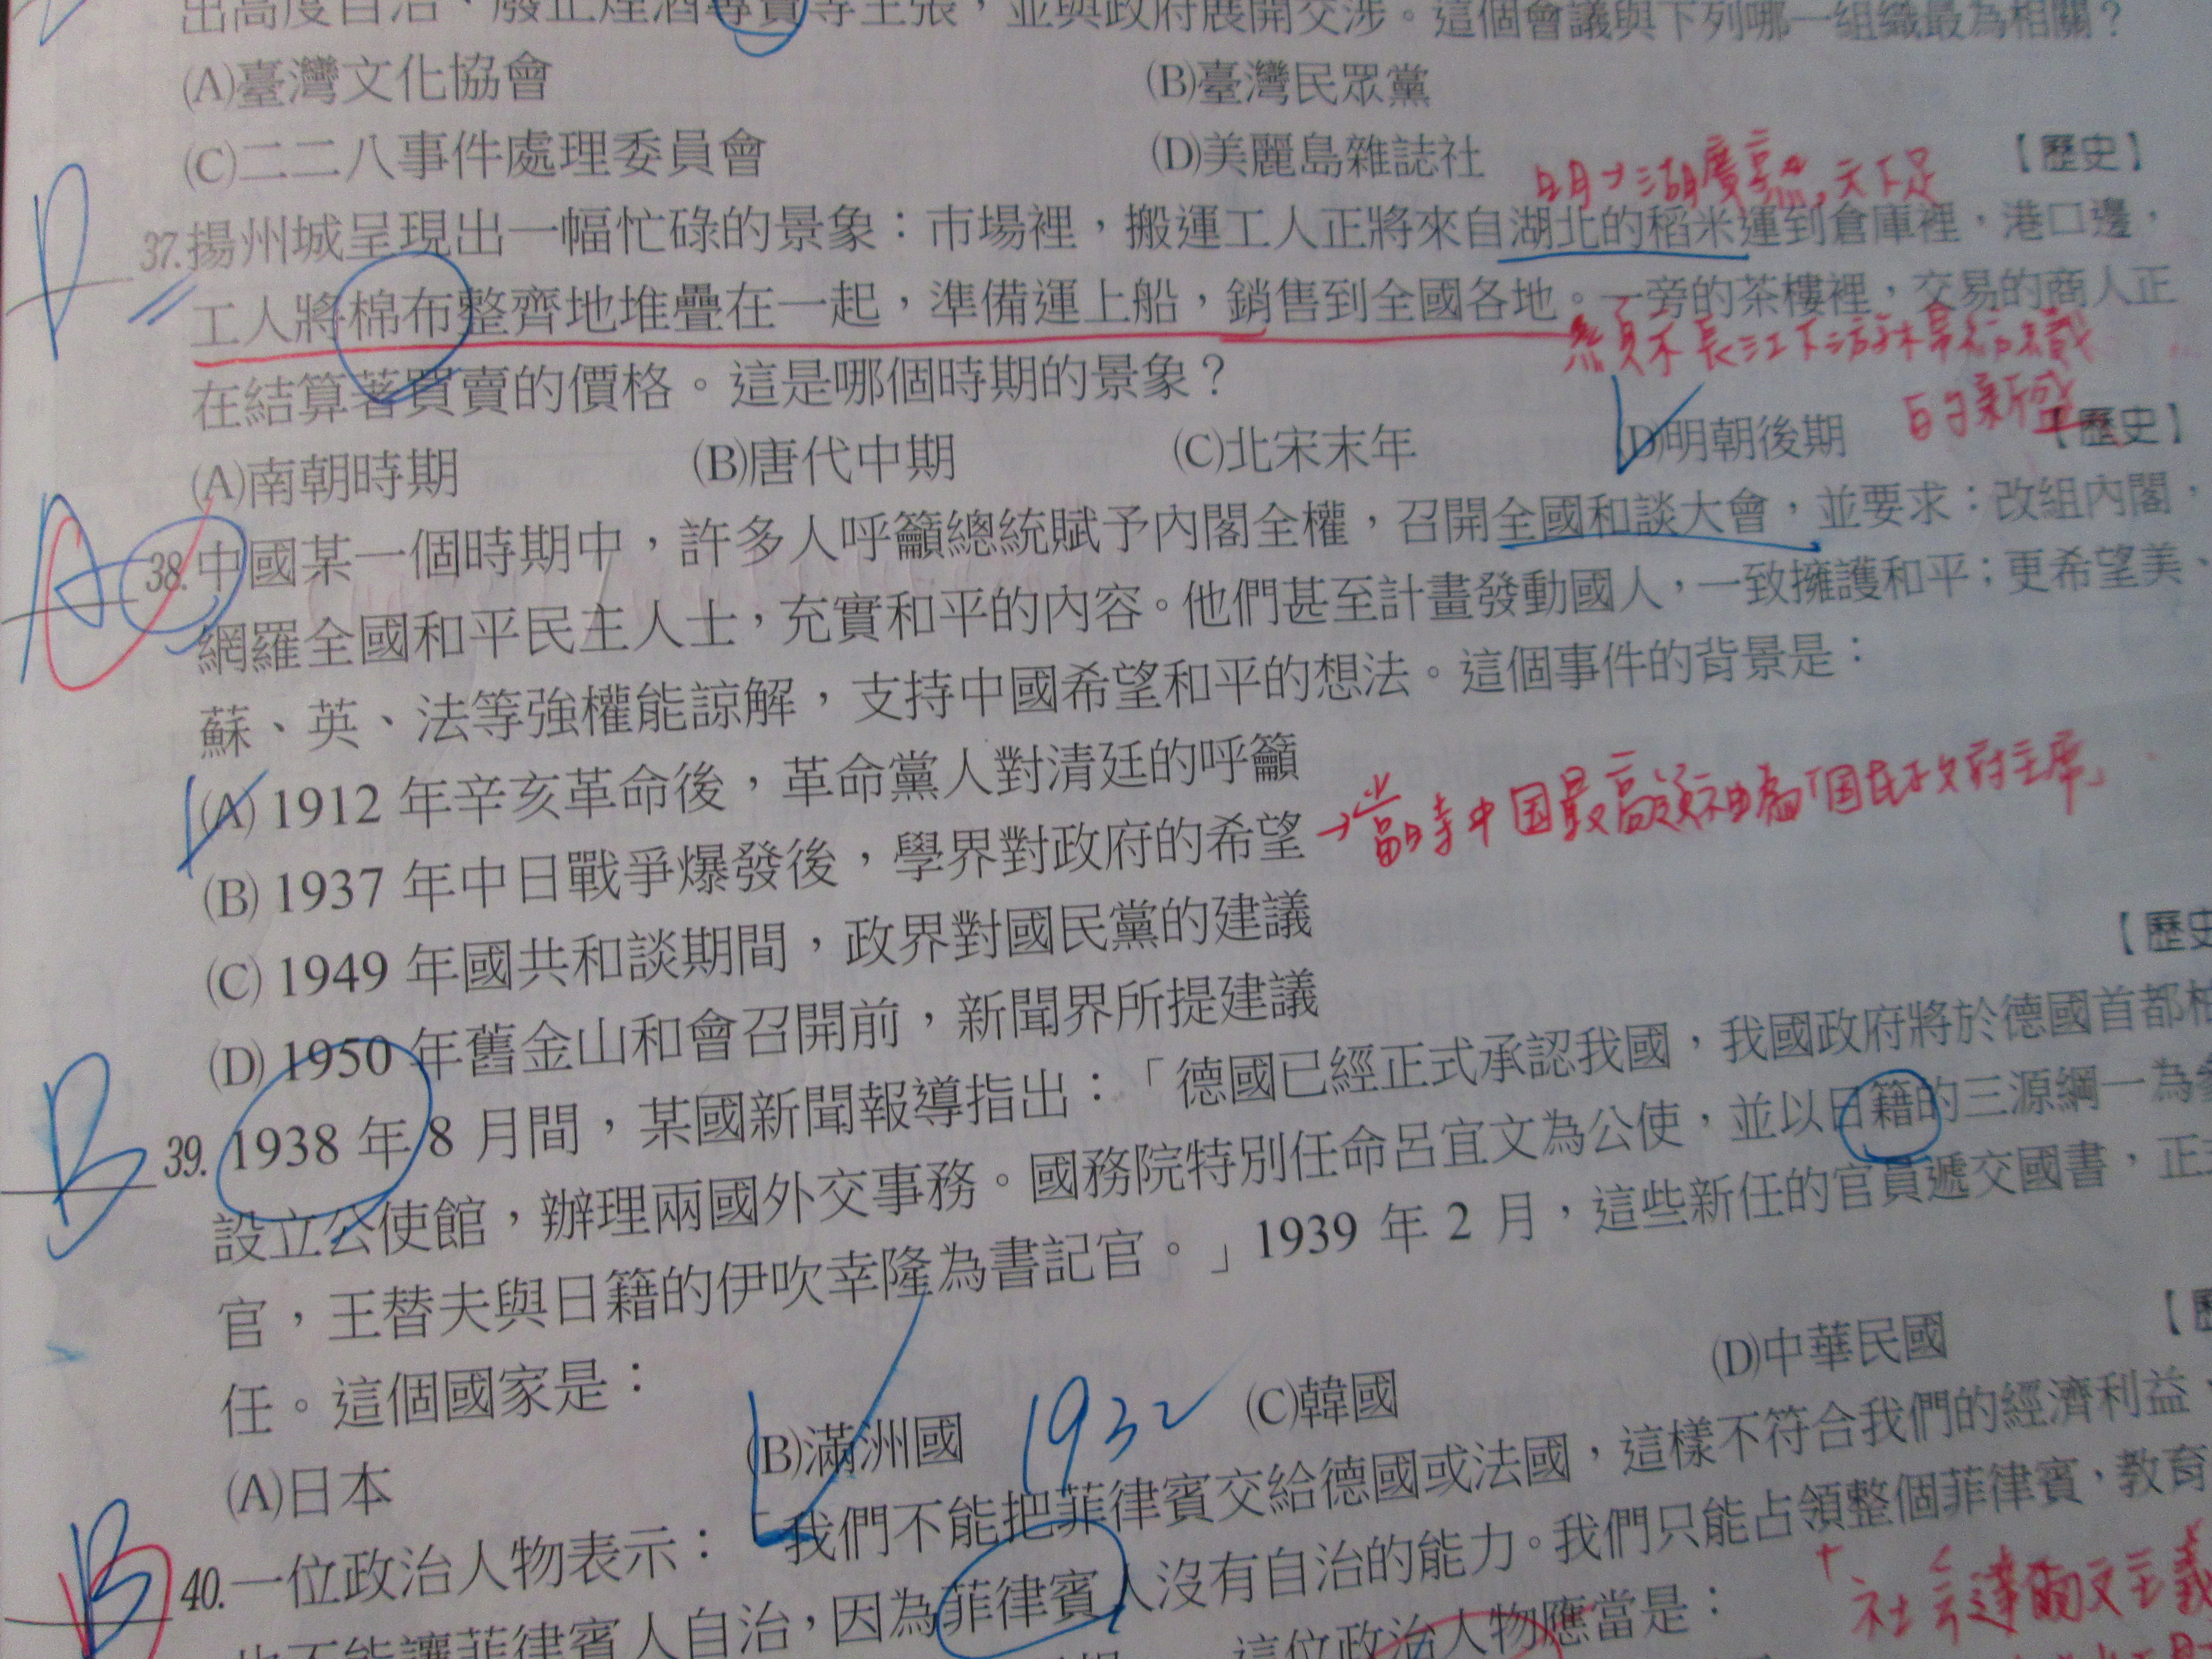 出高度自治、廢止煙酒專賣等主張，並與政府展開交涉。這個會議與下列哪一組織最為相關？
(A)臺灣文化協會 (B)臺灣民眾黨
(C)二二八事件處理委員會 (D)美麗島雜誌社 【歷史】
明→湖廣熟，天下足
D
37.揚州城呈現出一幅忙碌的景象：市場裡，搬運工人正將來自湖北的稻米運到倉庫裡，港口邊，
工人將棉布整齊地堆疊在一起，準備運上船，銷售到全國各地。一旁的茶樓裡，交易的商人正
長江下游棉紡織
日漸新盛
在結算著買賣的價格。這是哪個時期的景象？
(A)南朝時期 (B)唐代中期 (C)北宋末年 (D)明朝後期 【歷史】
A
38.中國某一個時期中，許多人呼籲總統賦予內閣全權，召開全國和談大會，並要求：改組內閣，
網羅全國和平民主人士，充實和平的內容。他們甚至計畫發動國人，一致擁護和平；更希望美、
蘇、英、法等強權能諒解，支持中國希望和平的想法。這個事件的背景是：
(A) 1912 年辛亥革命後，革命黨人對清廷的呼籲
(B) 1937 年中日戰爭爆發後，學界對政府的希望 →當時中国最高領袖為「国民政府主席」
(C) 1949 年國共和談期間，政界對國民黨的建議
(D) 1950 年舊金山和會召開前，新聞界所提建議 【歷史
B
39. 1938 年 8 月間，某國新聞報導指出：「德國已經正式承認我國，我國政府將於德國首都柏
設立公使館，辦理兩國外交事務。國務院特別任命呂宜文為公使，並以日籍的三源綱一為參
官，王替夫與日籍的伊吹幸隆為書記官。」1939 年 2 月，這些新任的官員遞交國書，正式
任。這個國家是：
(A)日本 (B)滿洲國 1932 (C)韓國 (D)中華民國 【歷
B
40.一位政治人物表示：「我們不能把菲律賓交給德國或法國，這樣不符合我們的經濟利益，
也不能讓菲律賓人自治，因為菲律賓人沒有自治的能力。我們只能占領整個菲律賓，教育
這位政治人物應當是：
社会達爾文主義